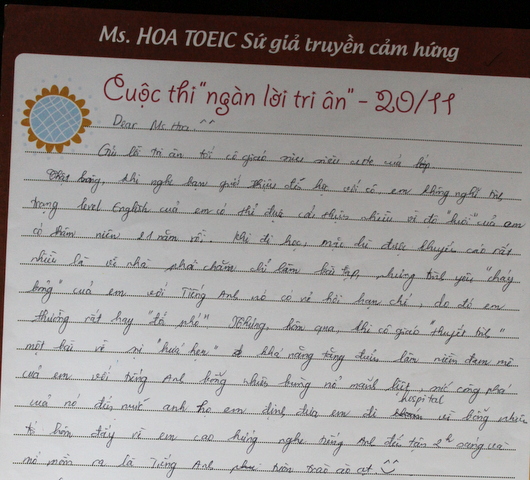 Ms. HOA TOEIC Sứ giả truyền cảm hứng
Cuộc thi "ngàn lời tri ân" - 20/11
Dear Ms Hoa, ^^
Gửi lời tri ân tới cô giáo siêu siêu cute của lớp
Thật lòng, khi nghe bạn giới thiệu đến học với cô, em không nghĩ tình
trạng level English của em có thể được cải thiện nhiều vì độ "lười" của em
có thâm niên 21 năm rồi. Khi đi học, mặc dù được khuyến cáo rất
nhiều là về nhà phải chăm chỉ làm bài tập, nhưng tình yêu "cháy
bỏng" của em với Tiếng Anh nó có vẻ hơi hạn chế, do đó em
thường rất hay "đổ phé" Nhưng, hôm qua, khi cô giáo "thuyết trình"
một bài về sự "hứa hẹn" khả năng tăng điểm lần niềm đam mê
của em với tiếng Anh bỗng nhiên bùng nổ mãnh liệt, nó công phá
của nó đến mức anh họ em định đưa em đi hospital vì bỗng nhiên
tố bồn đấy vì em cao hứng nghe tiếng Anh đến tận 2h sáng và
mở mồm ra là Tiếng Anh tuôn trào ào ạt